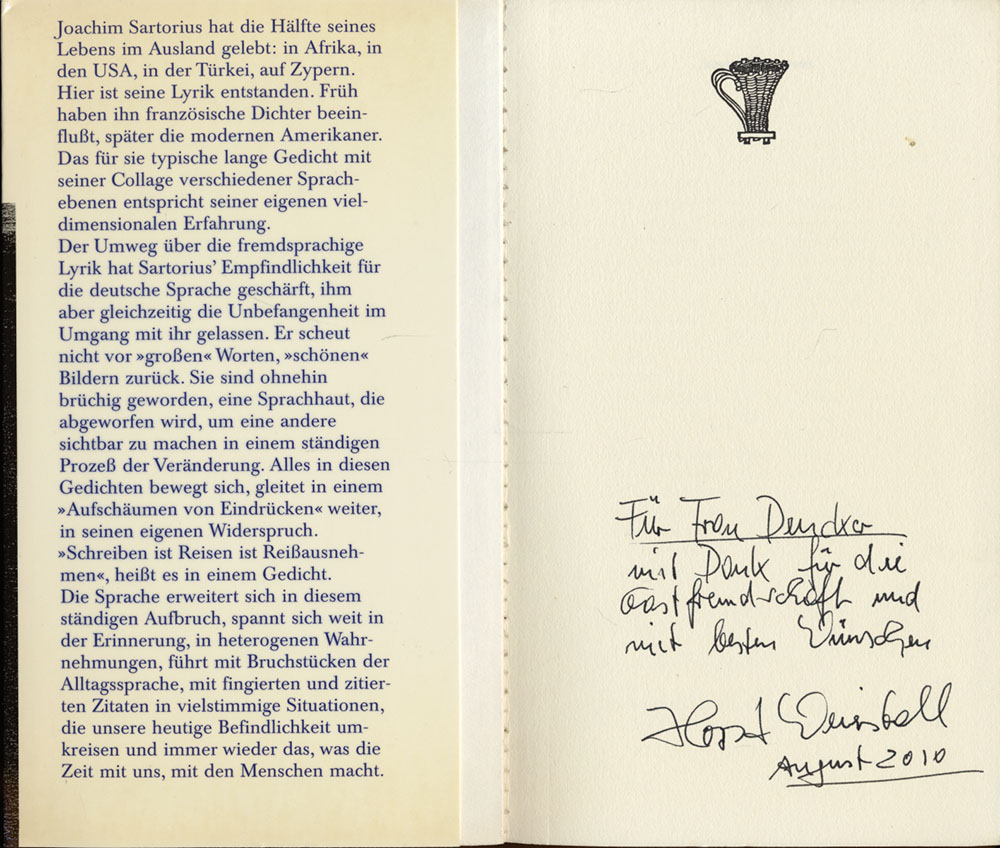 Joachim Sartorius hat die Hälfte seines
Lebens im Ausland gelebt: in Afrika, in
den USA, in der Türkei, auf Zypern.
Hier ist seine Lyrik entstanden. Früh
haben ihn französische Dichter beein-
flußt, später die modernen Amerikaner.
Das für sie typische lange Gedicht mit
seiner Collage verschiedener Sprach-
ebenen entspricht seiner eigenen viel-
dimensionalen Erfahrung.
Der Umweg über die fremdsprachige
Lyrik hat Sartorius’ Empfindlichkeit für
die deutsche Sprache geschärft, ihm
aber gleichzeitig die Unbefangenheit im
Umgang mit ihr gelassen. Er scheut
nicht vor »großen« Worten, »schönen«
Bildern zurück. Sie sind ohnehin
brüchig geworden, eine Sprachhaut, die
abgeworfen wird, um eine andere
sichtbar zu machen in einem ständigen
Prozeß der Veränderung. Alles in diesen
Gedichten bewegt sich, gleitet in einem
»Aufschäumen von Eindrücken« weiter,
in seinen eigenen Widerspruch.
»Schreiben ist Reisen ist Reißausneh-
men«, heißt es in einem Gedicht.
Die Sprache erweitert sich in diesem
ständigen Aufbruch, spannt sich weit in
der Erinnerung, in heterogenen Wahr-
nehmungen, führt mit Bruchstücken der
Alltagssprache, mit fingierten und zitier-
ten Zitaten in vielstimmige Situationen,
die unsere heutige Befindlichkeit um-
kreisen und immer wieder das, was die
Zeit mit uns, mit den Menschen macht.
Für Frau
mit Dank für die
Gastfreundschaft und
mit besten Wünschen
Horst
August 2010